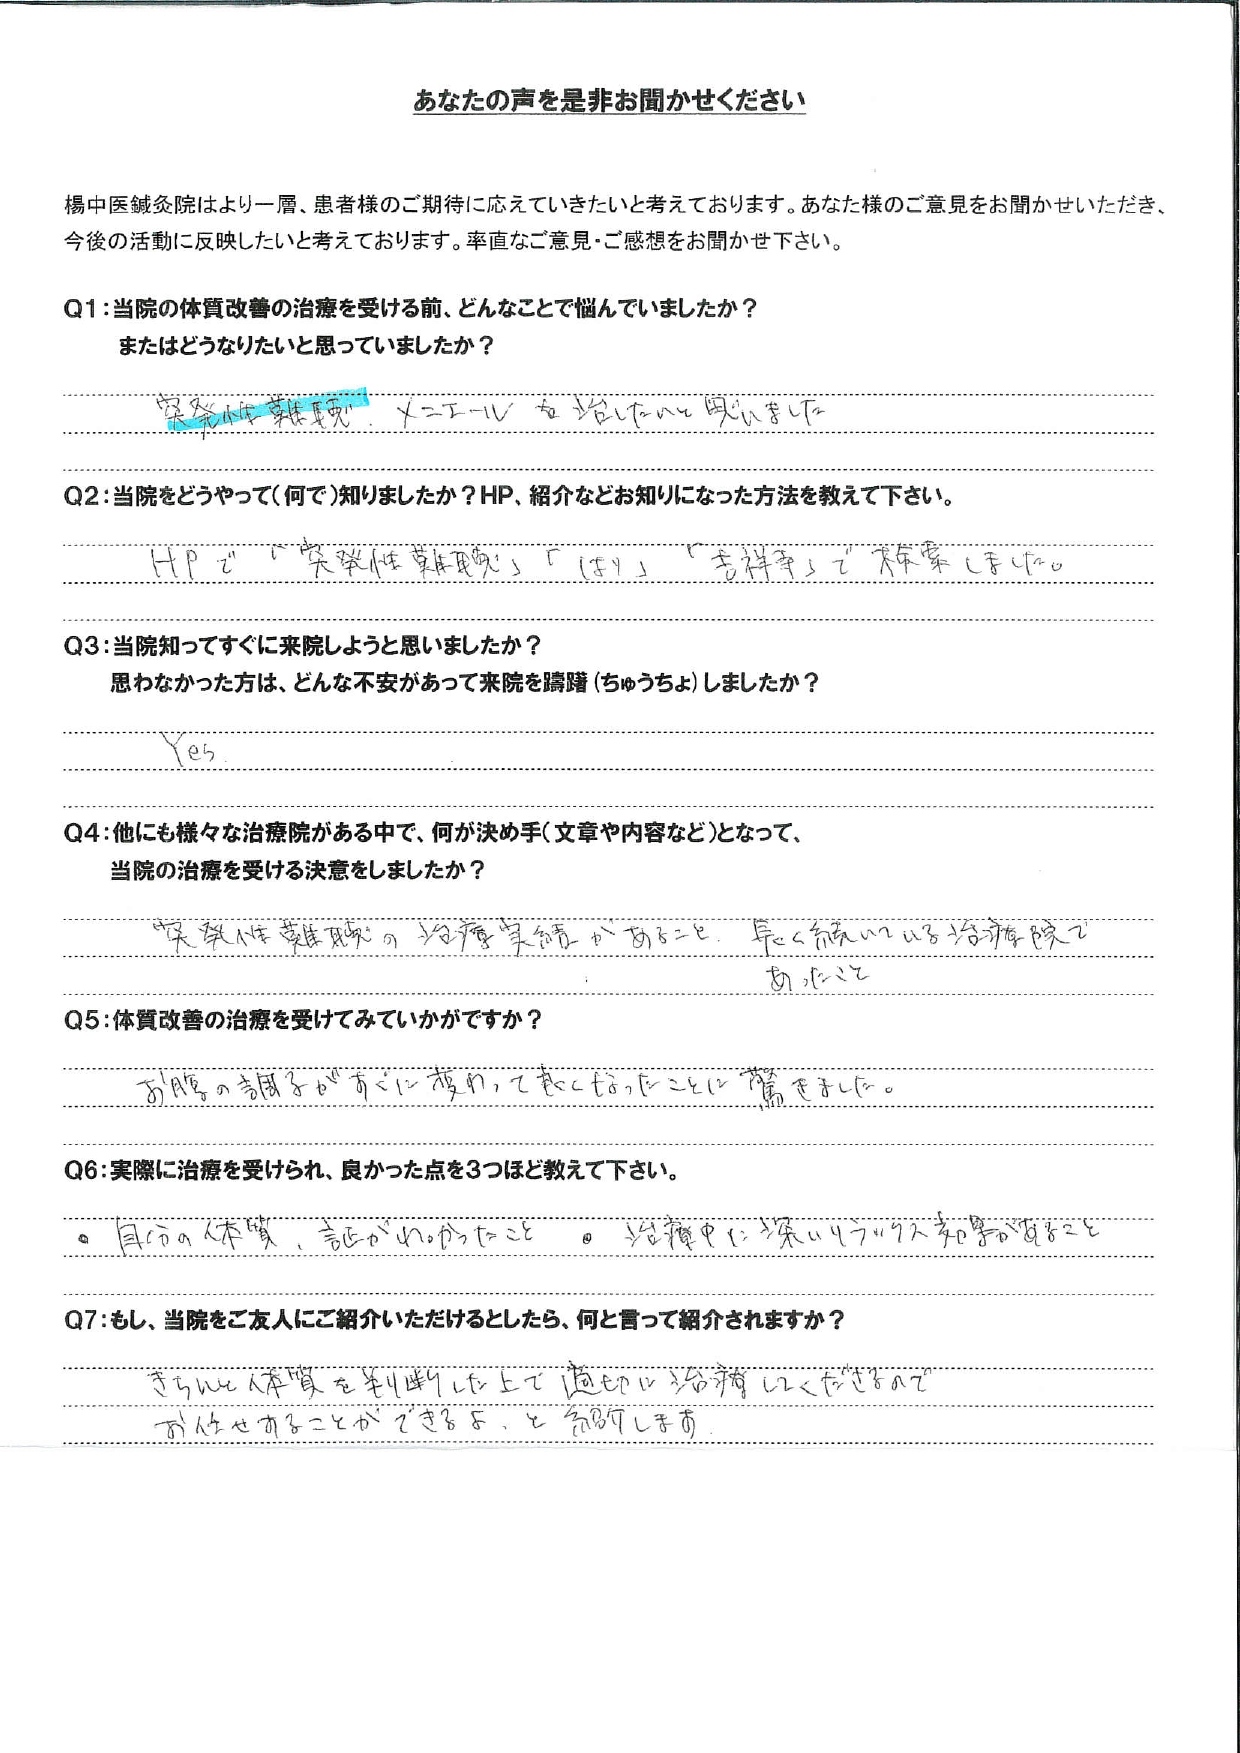 あなたの声を是非お聞かせください
楊中医鍼灸院はより一層、患者様のご期待に応えていきたいと考えております。あなた様のご意見をお聞かせいただき、
今後の活動に反映したいと考えております。率直なご意見・ご感想をお聞かせ下さい。
Q1:当院の体質改善の治療を受ける前、どんなことで悩んでいましたか？
またはどうなりたいと思っていましたか？
突発性難聴. メニエール を治したいと思いました
Q2:当院をどうやって(何で)知りましたか？HP、紹介などお知りになった方法を教えて下さい。
HPで「突発性難聴」「はり」「吉祥寺」で検索しました。
Q3:当院知ってすぐに来院しようと思いましたか？
思わなかった方は、どんな不安があって来院を躊躇(ちゅうちょ)しましたか？
Yes.
Q4:他にも様々な治療院がある中で、何が決め手(文章や内容など)となって、
当院の治療を受ける決意をしましたか？
突発性難聴の治療実績があること. 長く続いている治療院で
あったこと
Q5:体質改善の治療を受けてみていかがですか？
お腹の調子がすぐに変わって良くなったことに驚きました。
Q6:実際に治療を受けられ、良かった点を3つほど教えて下さい。
• 自分の体質、証がわかったこと • 治療中に深いリラックス効果があること
Q7:もし、当院をご友人にご紹介いただけるとしたら、何と言って紹介されますか？
きちんと体質を判断した上で適切に治療してくださるので
お任せすることができるよ、と紹介します.